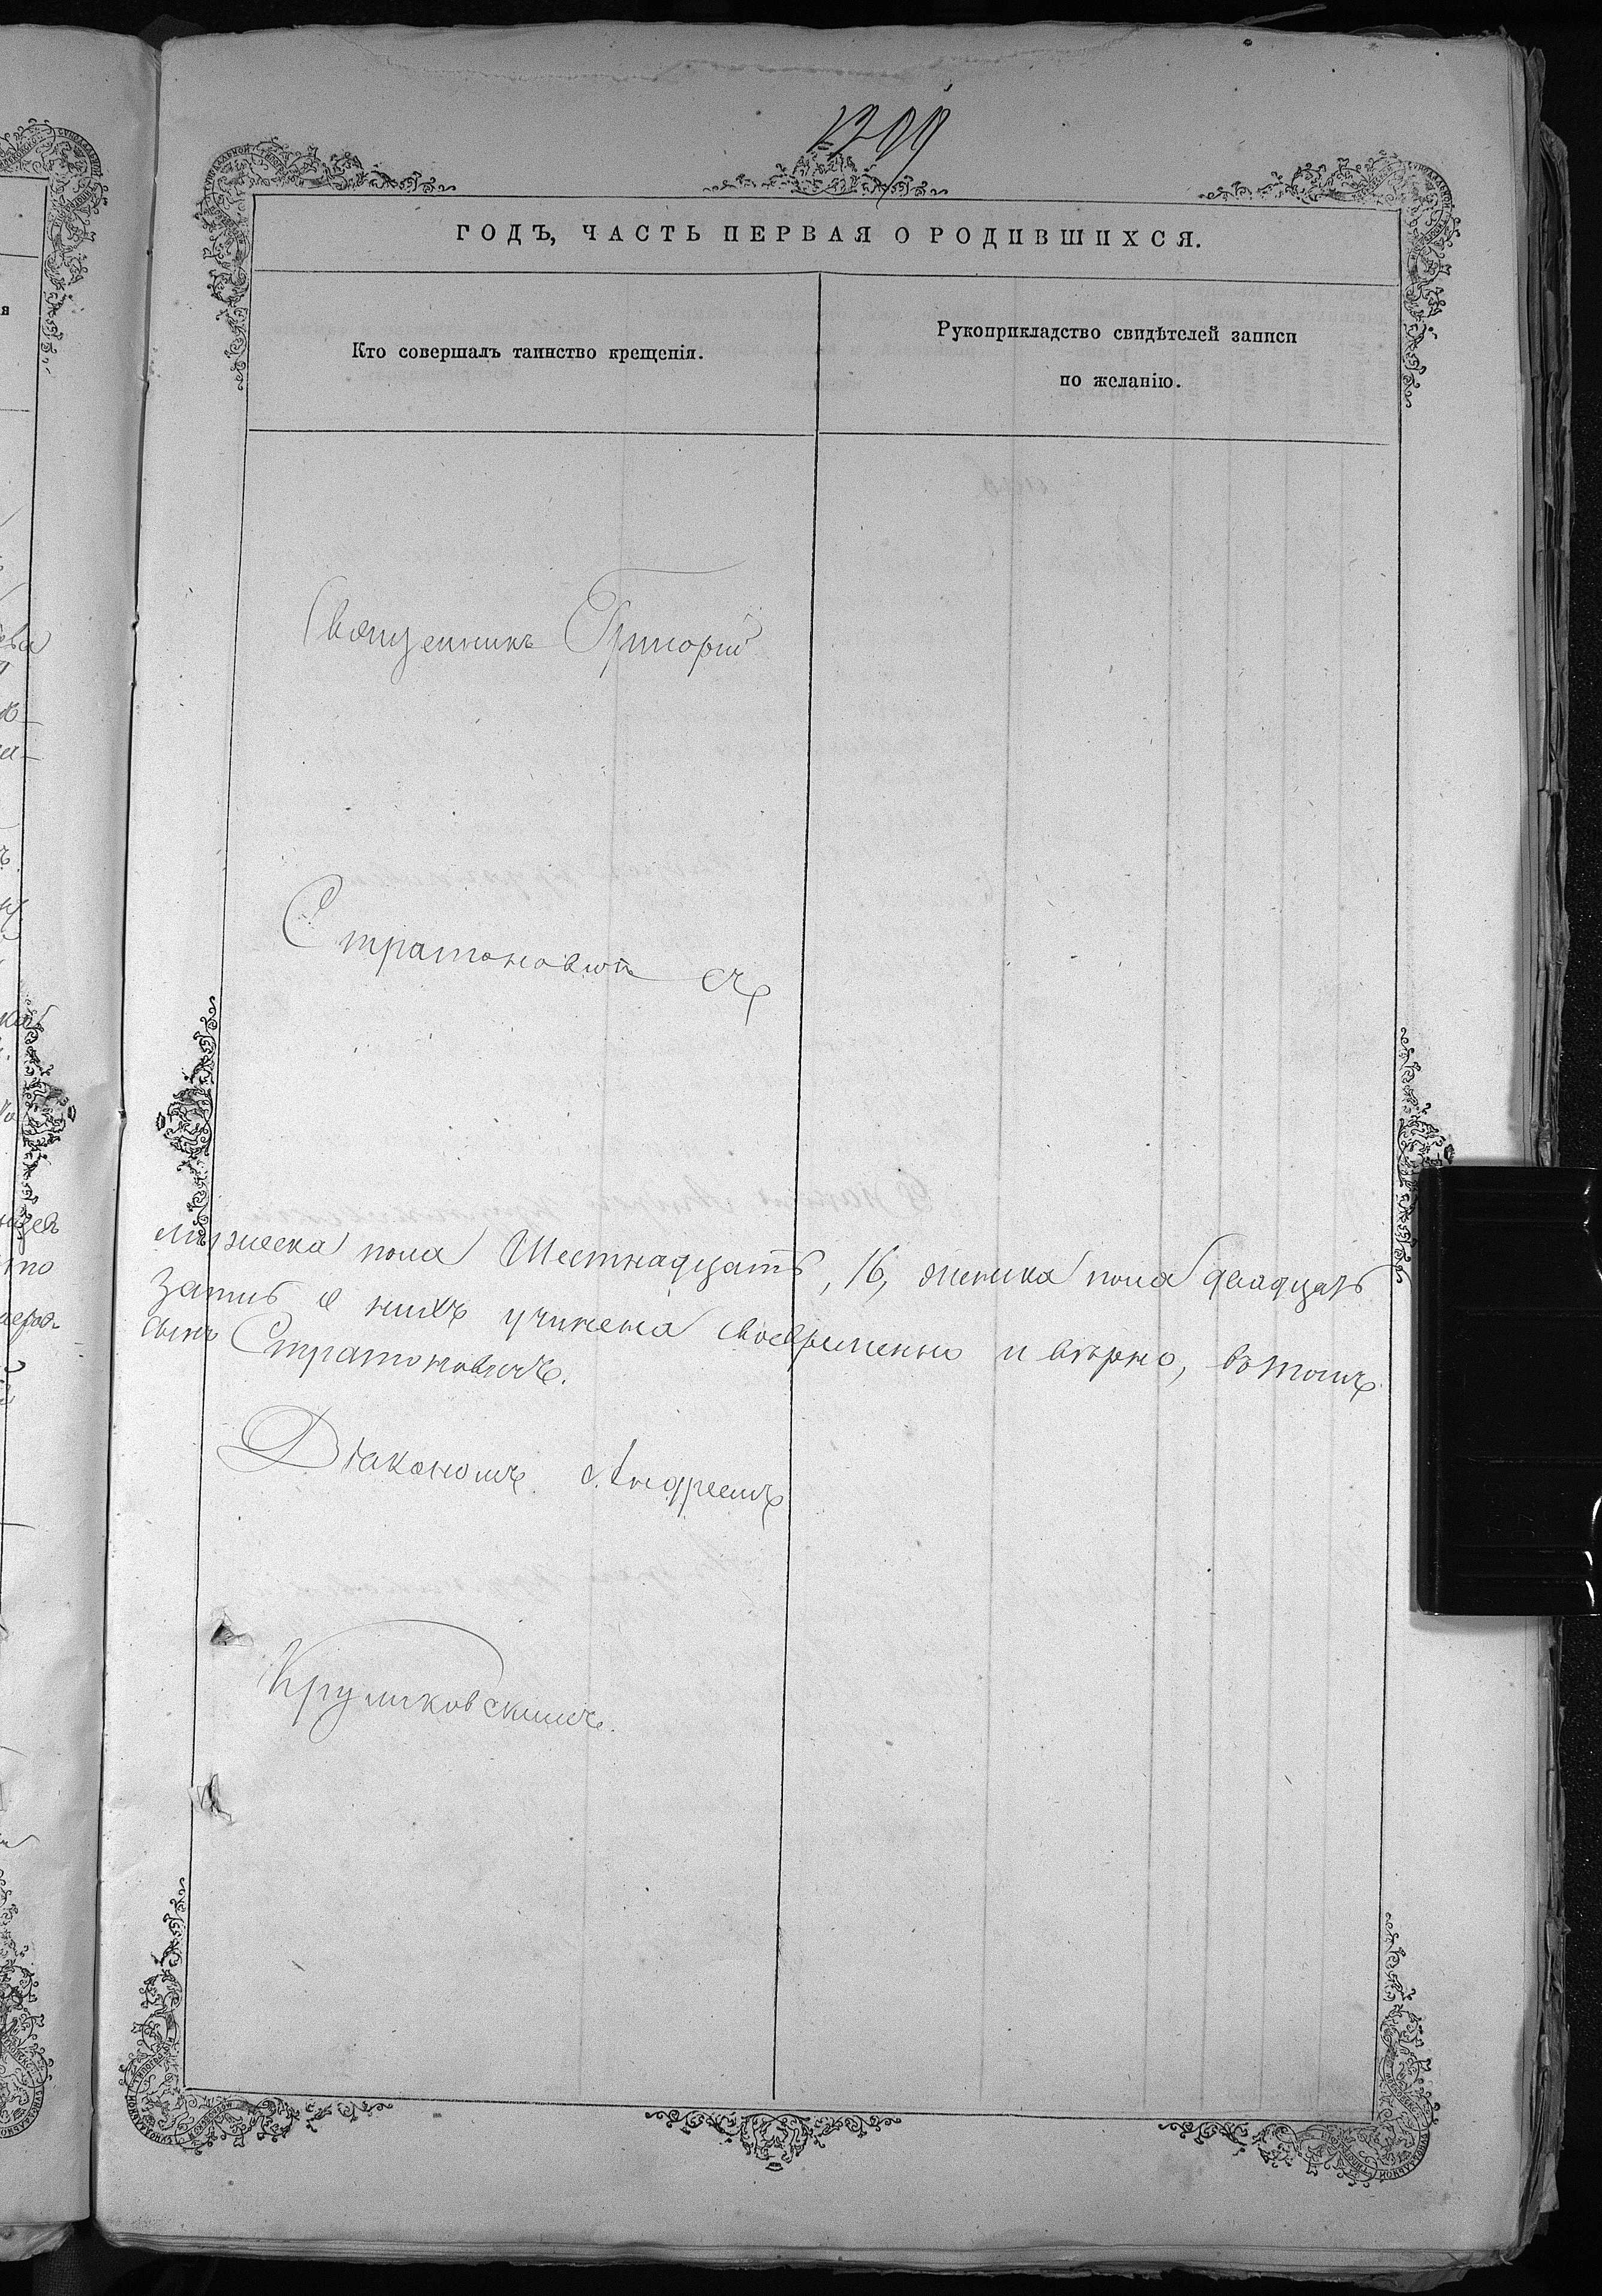 ГОДЪ, ЧАСТЬ ПЕРВАЯ О РОДИВШИХСЯ.
Кто совершалъ таинство крещенія.
Рукоприкладство свидѣтелей записи
по желанію.
Священникъ Григорій
Стратоновичъ съ
мужеска пола Шестнадцать, 16, женска пола двадцать
запись о нихъ учинена своевременно и вѣрно, въ томъ
Стратоновичъ.
Діакономъ Андреемъ
Круликовскимъ.